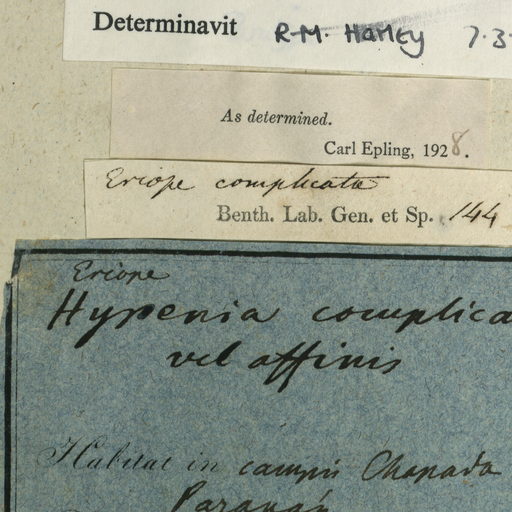 Determinavit R.M. Harley 7.3
As determined.
Carl Epling, 1928.
Eriope complicata
Benth. Lab. Gen. et Sp. 144
Eriope
Hypenia complica
vel affinis
Habitat in campis Chapada
Paranán